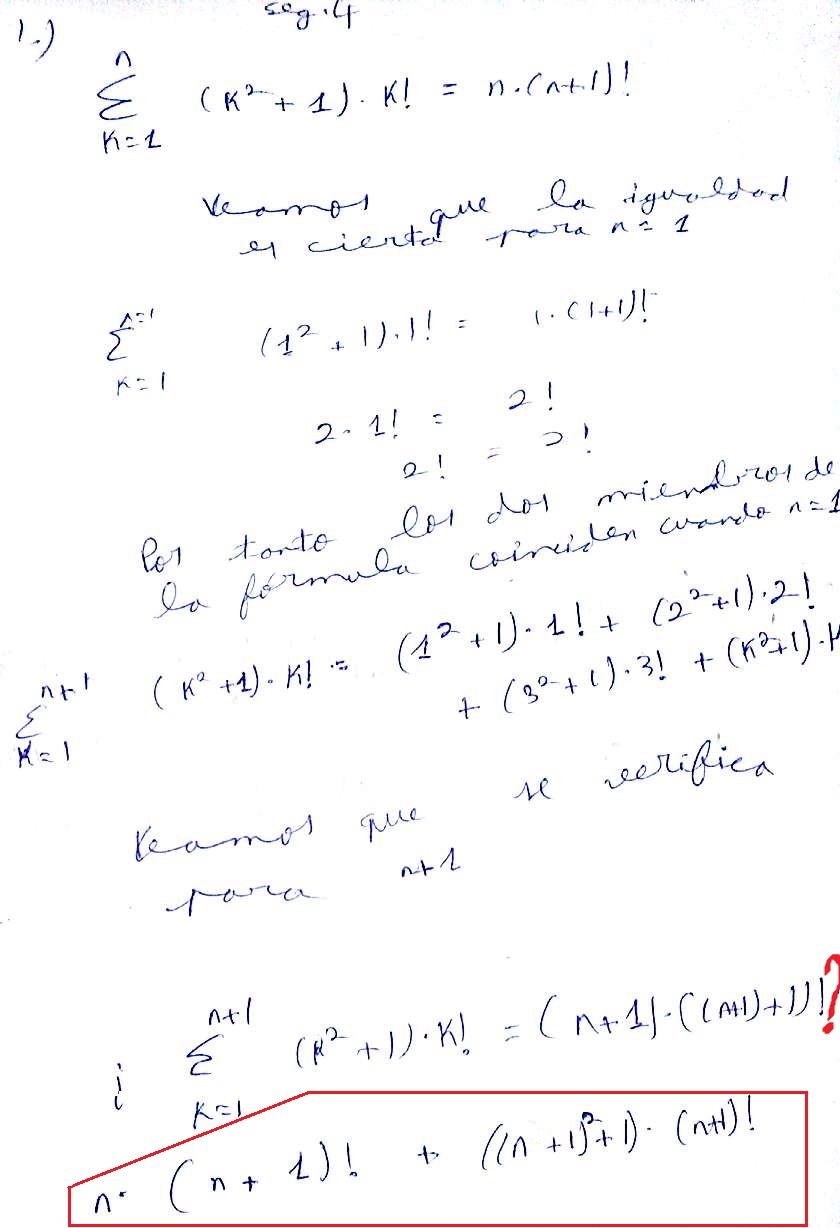 seg. 4
1.)
n
∑ (K² + 1) · K! = n·(n+1)!
K=1
Veamos que la igualdad
es cierta para n = 1
n=1
∑ (1² + 1)·1! = 1·(1+1)!
K=1
2 · 1! = 2!
2! = 2!
Por tanto los dos miembros de
la fórmula coinciden cuando n=1
n+1
∑ (K² + 1)· K! = (1² + 1)· 1! + (2² + 1)·2!
K=1
+ (3² + 1)·3! + (K²+1)·K
Veamos que se verifica
para n+1
n+1
¿ ∑ (K² + 1)·K! = (n+1)·((n+1)+1)! ?
K=1
n· (n + 1)! + ((n +1)²+1)· (n+1)!